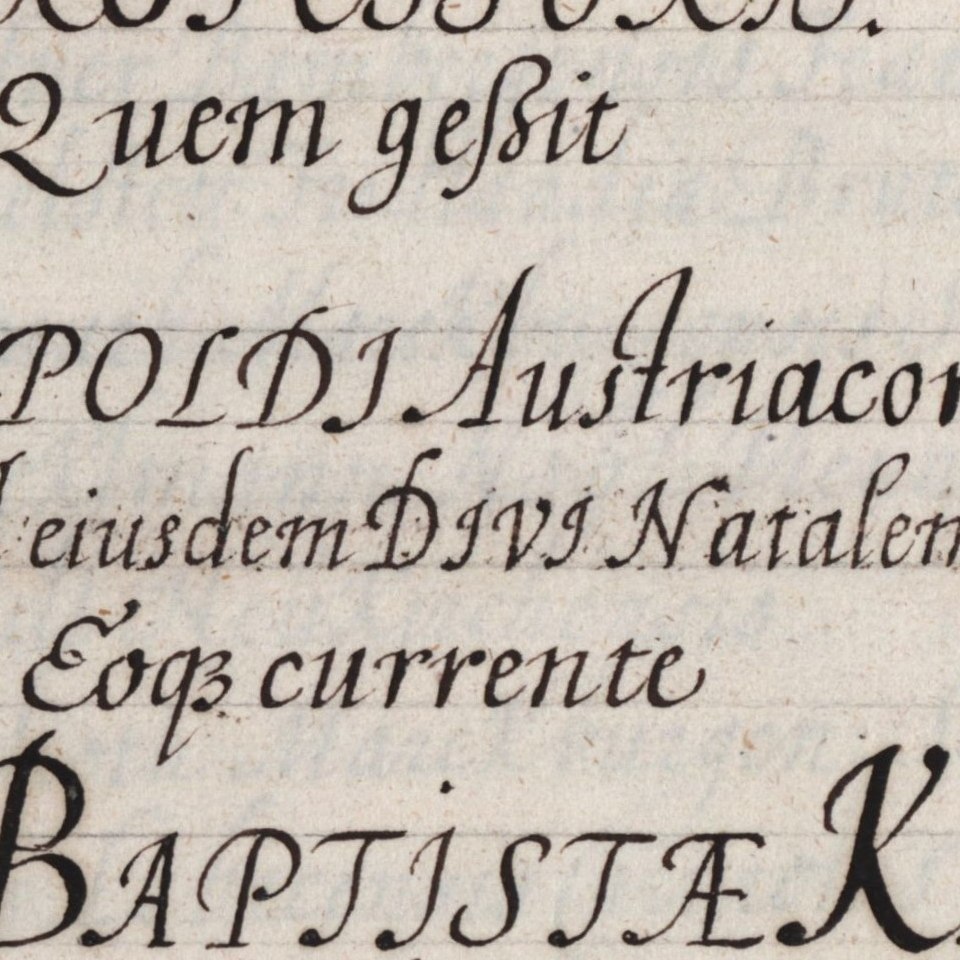 Quem geßit
POLDI Austriacor
eiusdem DIVI Natalem
Eoqꝫ currente
BAPTISTÆ K